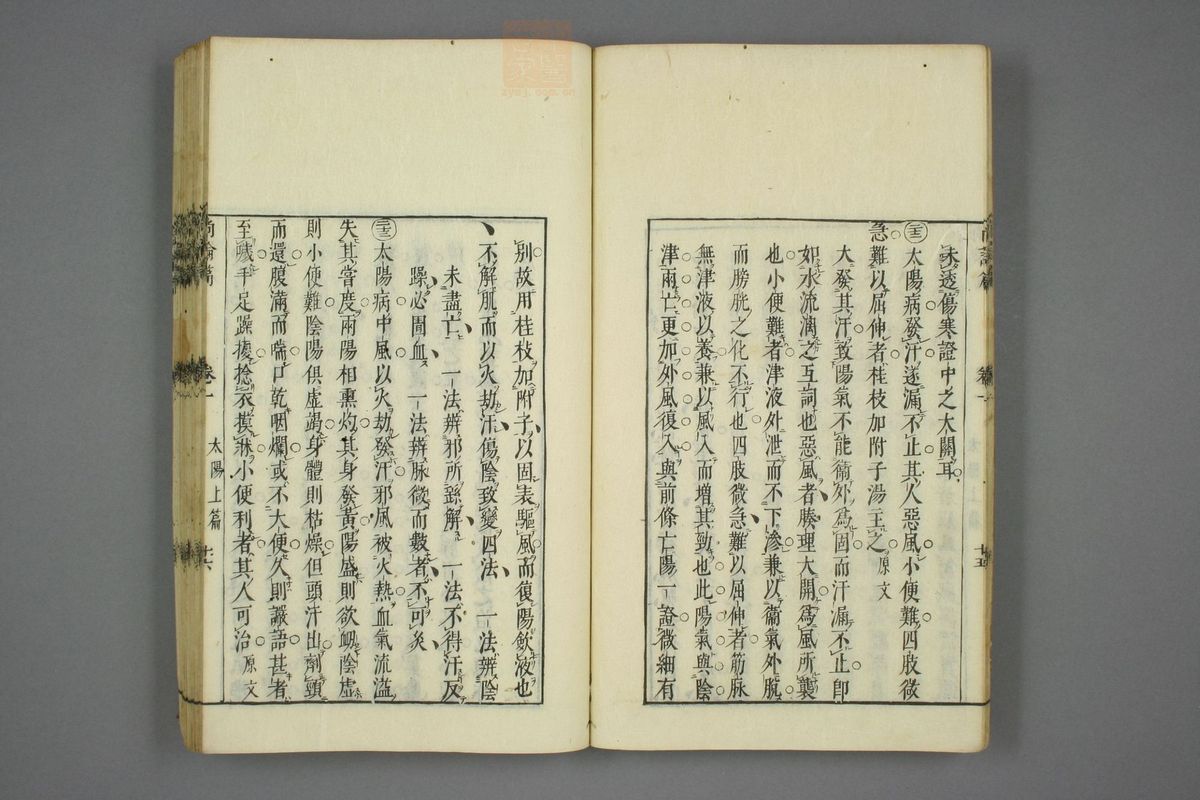 未透傷寒證中之大關耳
㊁㊂太陽病發汗遂漏不止其人惡風小便難四肢微
急難以屈伸者桂枝加附子湯主之原文
大發其汗致陽氣不能衛外爲固而汗漏不止卽
如水流漓之互詞也惡風者腠理大開爲風所襲
也小便難者津液外泄而不下滲兼以衛氣外脫
而膀胱之化不行也四肢微急難以屈伸者筋脉
無津液以養兼以風入而增其勁也此陽氣與陰
津兩亡更加外風復入與前條亡陽一證微細有
尚論篇 卷一 十五
別故用桂枝加附子以固表驅風而復陽歛液也
不解肌而以火劫汗傷陰致變四法 一法辨陰
未盡亡 一法辨邪所繇解 一法不得汗反
躁必圊血 一法辨脉微而數者不可灸
太陽病中風以火劫發汗邪風被火熱血氣流溢
失其常度兩陽相熏灼其身發黃陽盛則欲衂陰虛
則小便難陰陽俱虛竭身體則枯燥但頭汗出劑頸
而還腹滿而喘口乾咽爛或不大便久則讝語甚者
至噦手足躁擾捻衣摸牀小便利者其人可治原文
尚論篇 卷一 太陽上篇 十六
zysj.com.cn